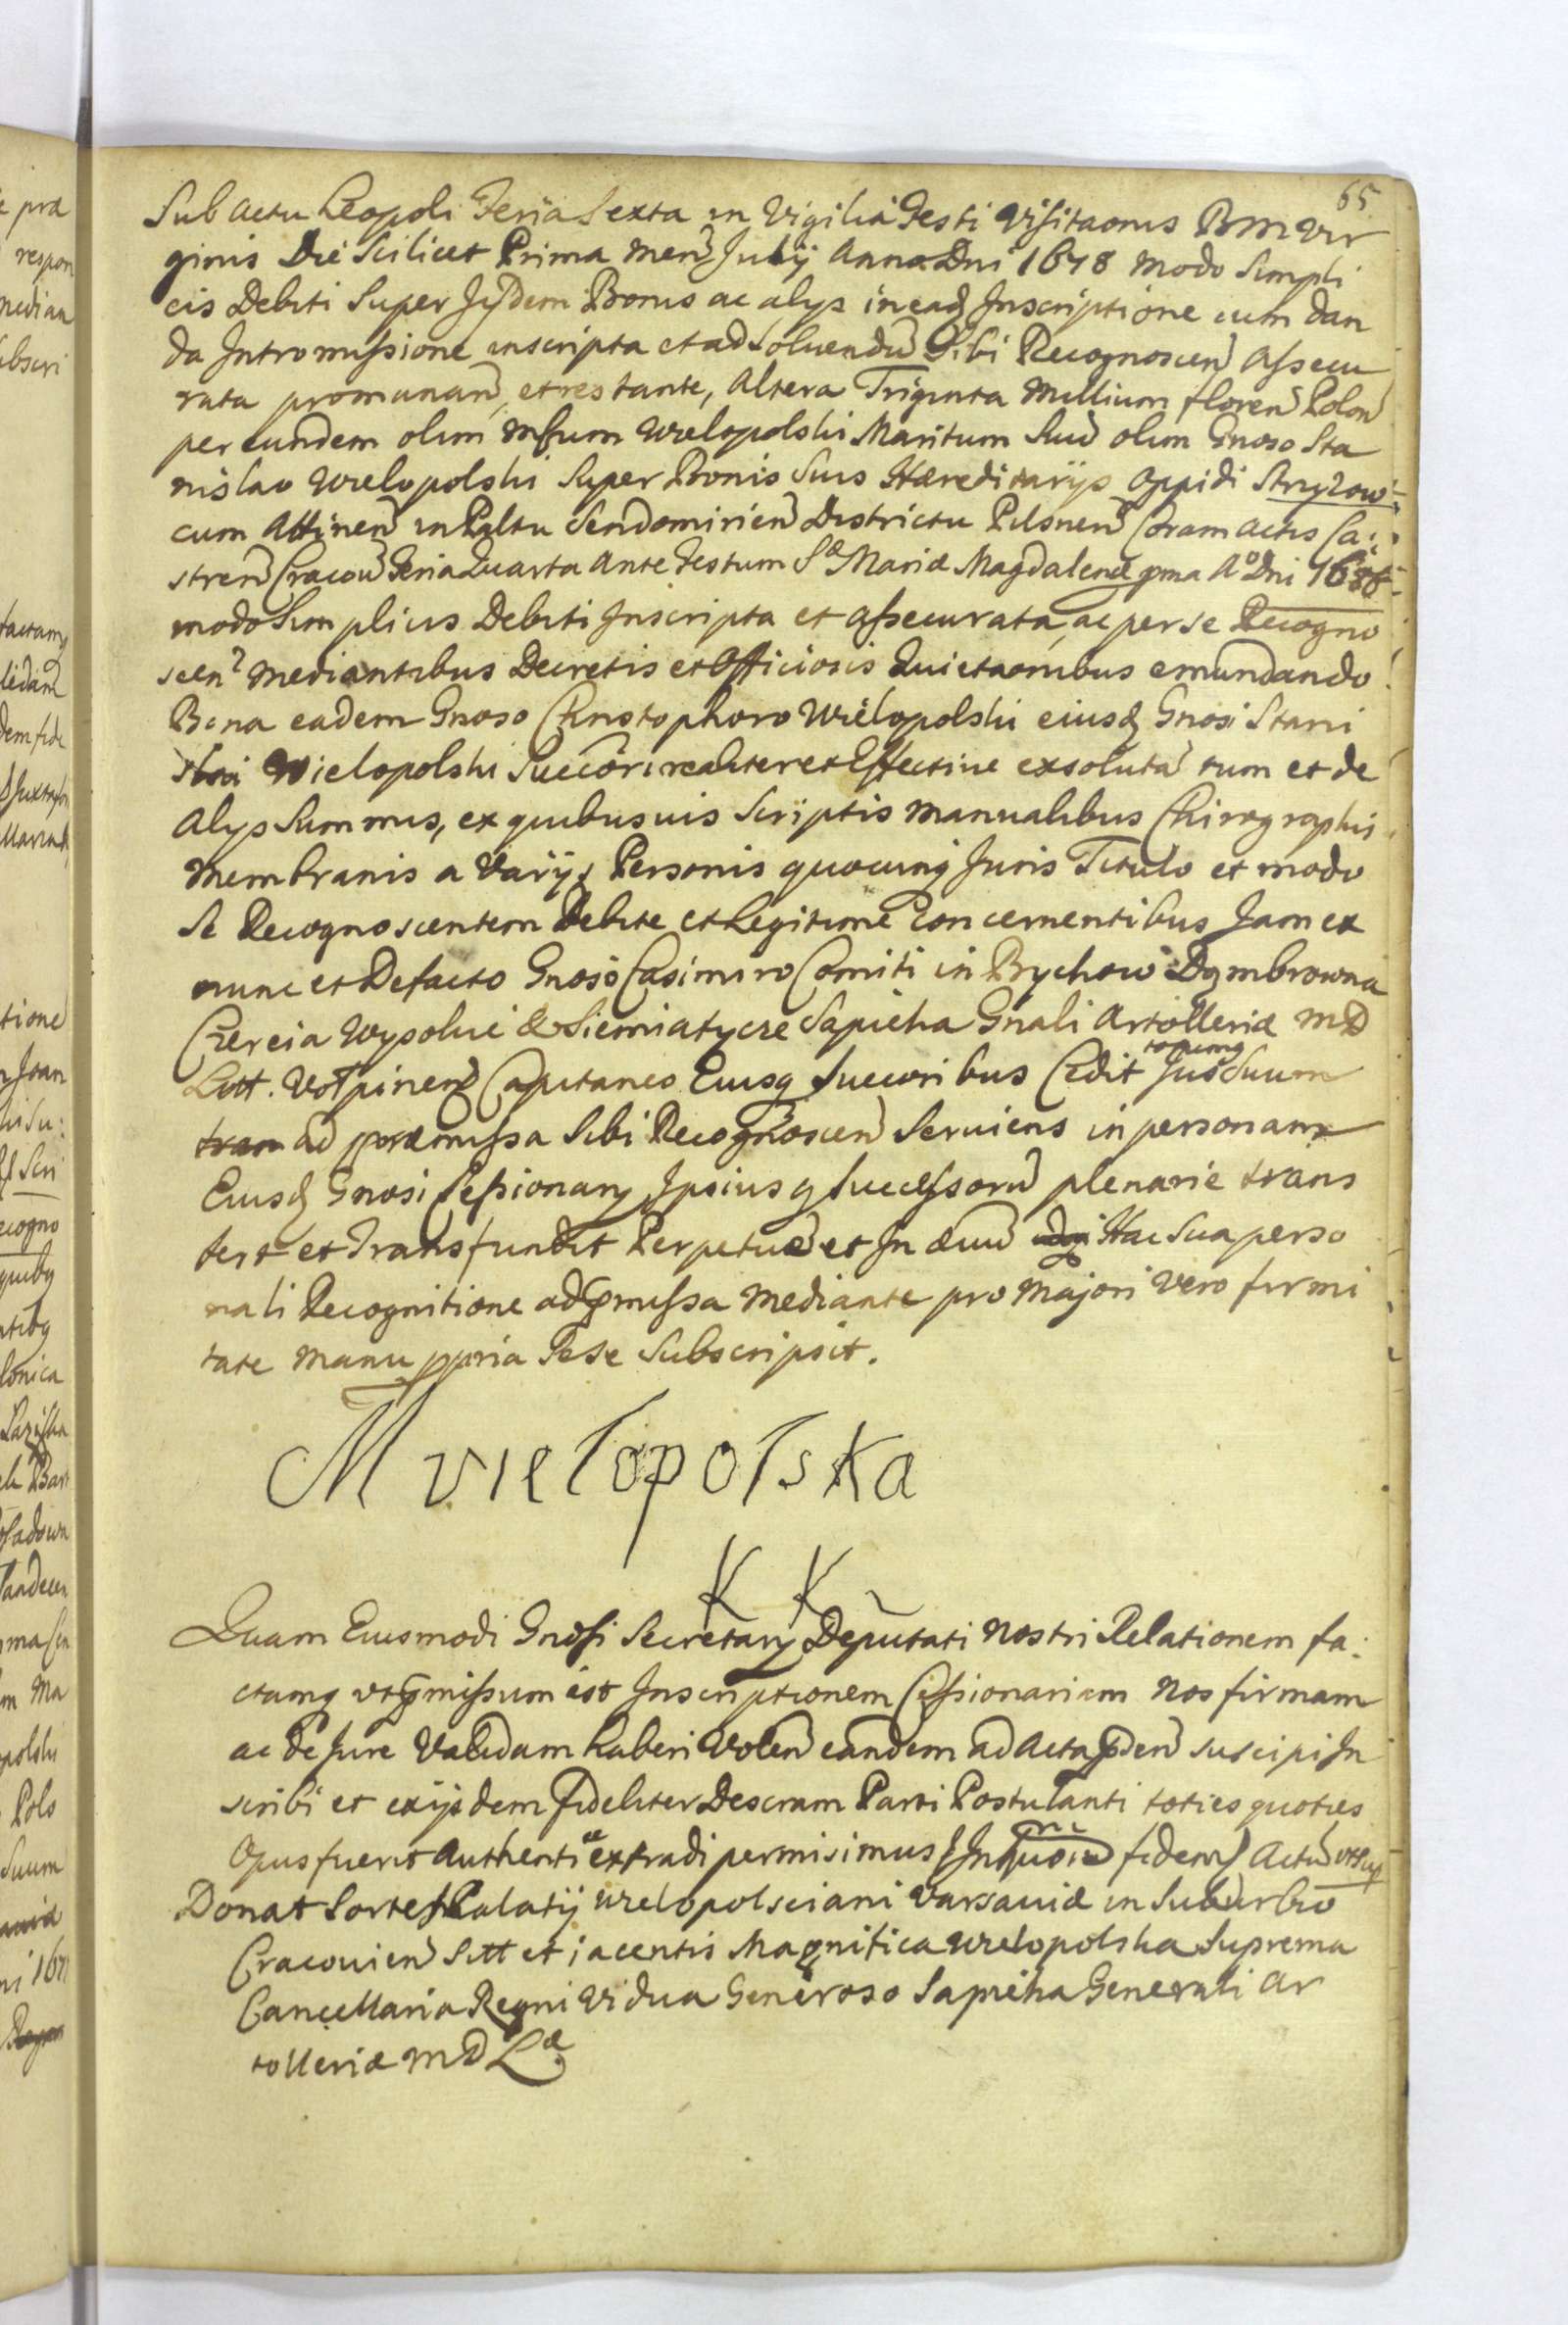 65
Sub actu Leopoli Feria Sexta in Vigilia Festi Visitaonis BM Vir
ginis Die Scilicet Prima Mens July Anno Dni 1678 modo Simpli
cis Debiti Super Iisdem Bonis ac alys in eadq Inscriptione cum dan
da Intromissione inscripta et ad Soluendu Sibi Recognoscen assecu
rata promanan, et restante, Altera Triginta Millium floren Polon
per eundem olim Mfcum Wielopolski Maritum Suu olim Gnoso Sta
nislao Wielopolski Super Bonis Suis Hæreditariÿs Oppidi Stryzow
cum Attinen in Pltu Sendomirien Districtu Pilsnen Coram actis Ca:
stren Cracou Feria Quarta Ante Festum Sæ Mariæ Magdalenæ pma Ao Dni 1686
modo Simplicis Debiti Inscripta et assecurata, ac per se Recogno
scen Mediantibus Decretis et Officiosis Quietaonibus emundando
Bona eadem Gnoso Christophoro Wielopolski eiusq Gnosi Stani
slai Wielopolski Succori realiter et Effectiue exsoluta tum et de
Alys Summis, ex quibusuis Scriptis Manualibus Chirographis
Membranis a Varÿs Personis quocunq Juris Titulo et modo
Se Recognoscentem Debite et Legitime Concernentibus Jam ex
nunc et Defacto Gnoso Casimiro Comiti in Bychow Dąmbrowna
Czereia Wysokie & Siemiatycze Sapieha Gnali Artolleriæ MD
Litt. Volpinen Capitaneo Eiusq Succoribus Cedit Jus Suum
totumq
tran ad præmissa Sibi Recognoscen Seruiens in personam
Eiusd Gnosi Cessionary Ipsiusq Successoru plenarie trans
fert et Transfundit Perpetue et In æuu Hac Sua perso
nali Recognitione ad pmissa Mediante pro Majori Vero firmi
tate Manu ppria Sese Subscripsit.
M vielopolska
K K
Quam Eiusmodi Gnosi Secretary Deputati Nostri Relationem fa:
ctamq vt pmissum est Inscriptionem Cessionariam Nos firmam
ac De Jure Validam haberi Volen eandem ad Acta pden suscipi In
scribi et ex ijsdem fideliter Descram Parti Postulanti toties quoties
Opus fuerit Authentice extradi permisimus In fidem Actu vt sup
Donat Sortes Palatij Wielopolsciani Varsauiæ in Suburbio
Cracouien Sitt et iacentis Magnifica Wielopolska Suprema
Cancellaria Regni Vidua Generoso Sapieha Generali Ar
tolleriæ MD Læ